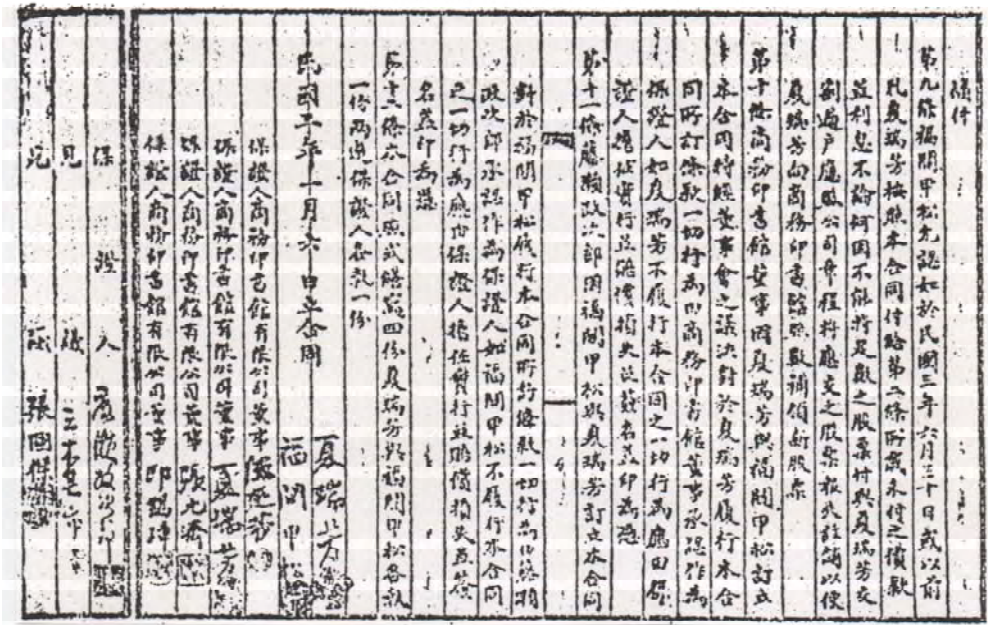 條件
第九條福間甲松允認如於民國三年六月三十日或以前
夏瑞芳按照本合同付給第二條所載未付之價款
並利息不論何因不能將足數之股票付與夏瑞芳交
割過戶應即公司章程將應交之股票報失註銷以便
夏瑞芳向商務印書館照數補領新股票
第十條商務印書館董事因夏瑞芳與福間甲松訂立
本合同時經董事會之議決對於夏瑞芳履行本合
同所訂條款一切行為由商務印書館董事承認作為
保證人如夏瑞芳不履行本合同之一切行為應由保
證人擔任實行並賠償損失茲簽名蓋印為憑
第十一條 政次郎因福間甲松與夏瑞芳訂立本合同
對於福間甲松履行本合同所訂條款一切行為
政次郎承認作為保證人如福間甲松不履行本合同
之一切行為應由保證人擔任實行並賠償損失互簽
名蓋印為憑
第十二條本合同照式繕寫四份夏瑞芳與福間甲松各執
一份兩造保證人各執一份
民國三年一月六日立合同 夏瑞芳
福間甲
保證人商務印書館有限公司董事
保證人商務印書館有限公司董事 夏瑞芳
保證人商務印書館有限公司董事 張元濟
保證人商務印書館有限公司董事
保證人 政次郎
見議
見議 張國傑